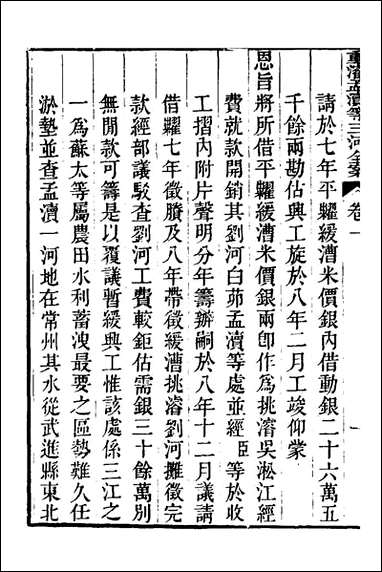 重濬孟瀆等三河全案 卷一
請於七年平糶緩漕米價銀內借動銀二十六萬五
千餘兩勘估興工旋於八年二月工竣仰蒙
恩旨將所借平糶緩漕米價銀兩卽作爲挑濬吳淞江經
費就款開銷其劉河白茆孟瀆等處並經臣等於收
工摺內附片聲明分年籌辦嗣於八年十二月議請
借糶七年徵賸及八年帶徵緩漕挑濬劉河攤徵完
款經部議駁查劉河工費較鉅估需銀三十餘萬別
無閒款可籌是以覆議暫緩興工惟該處係三江之
一爲蘇太等屬農田水利蓄洩最要之區勢難久任
淤墊並查孟瀆一河地在常州其水從武進縣東北